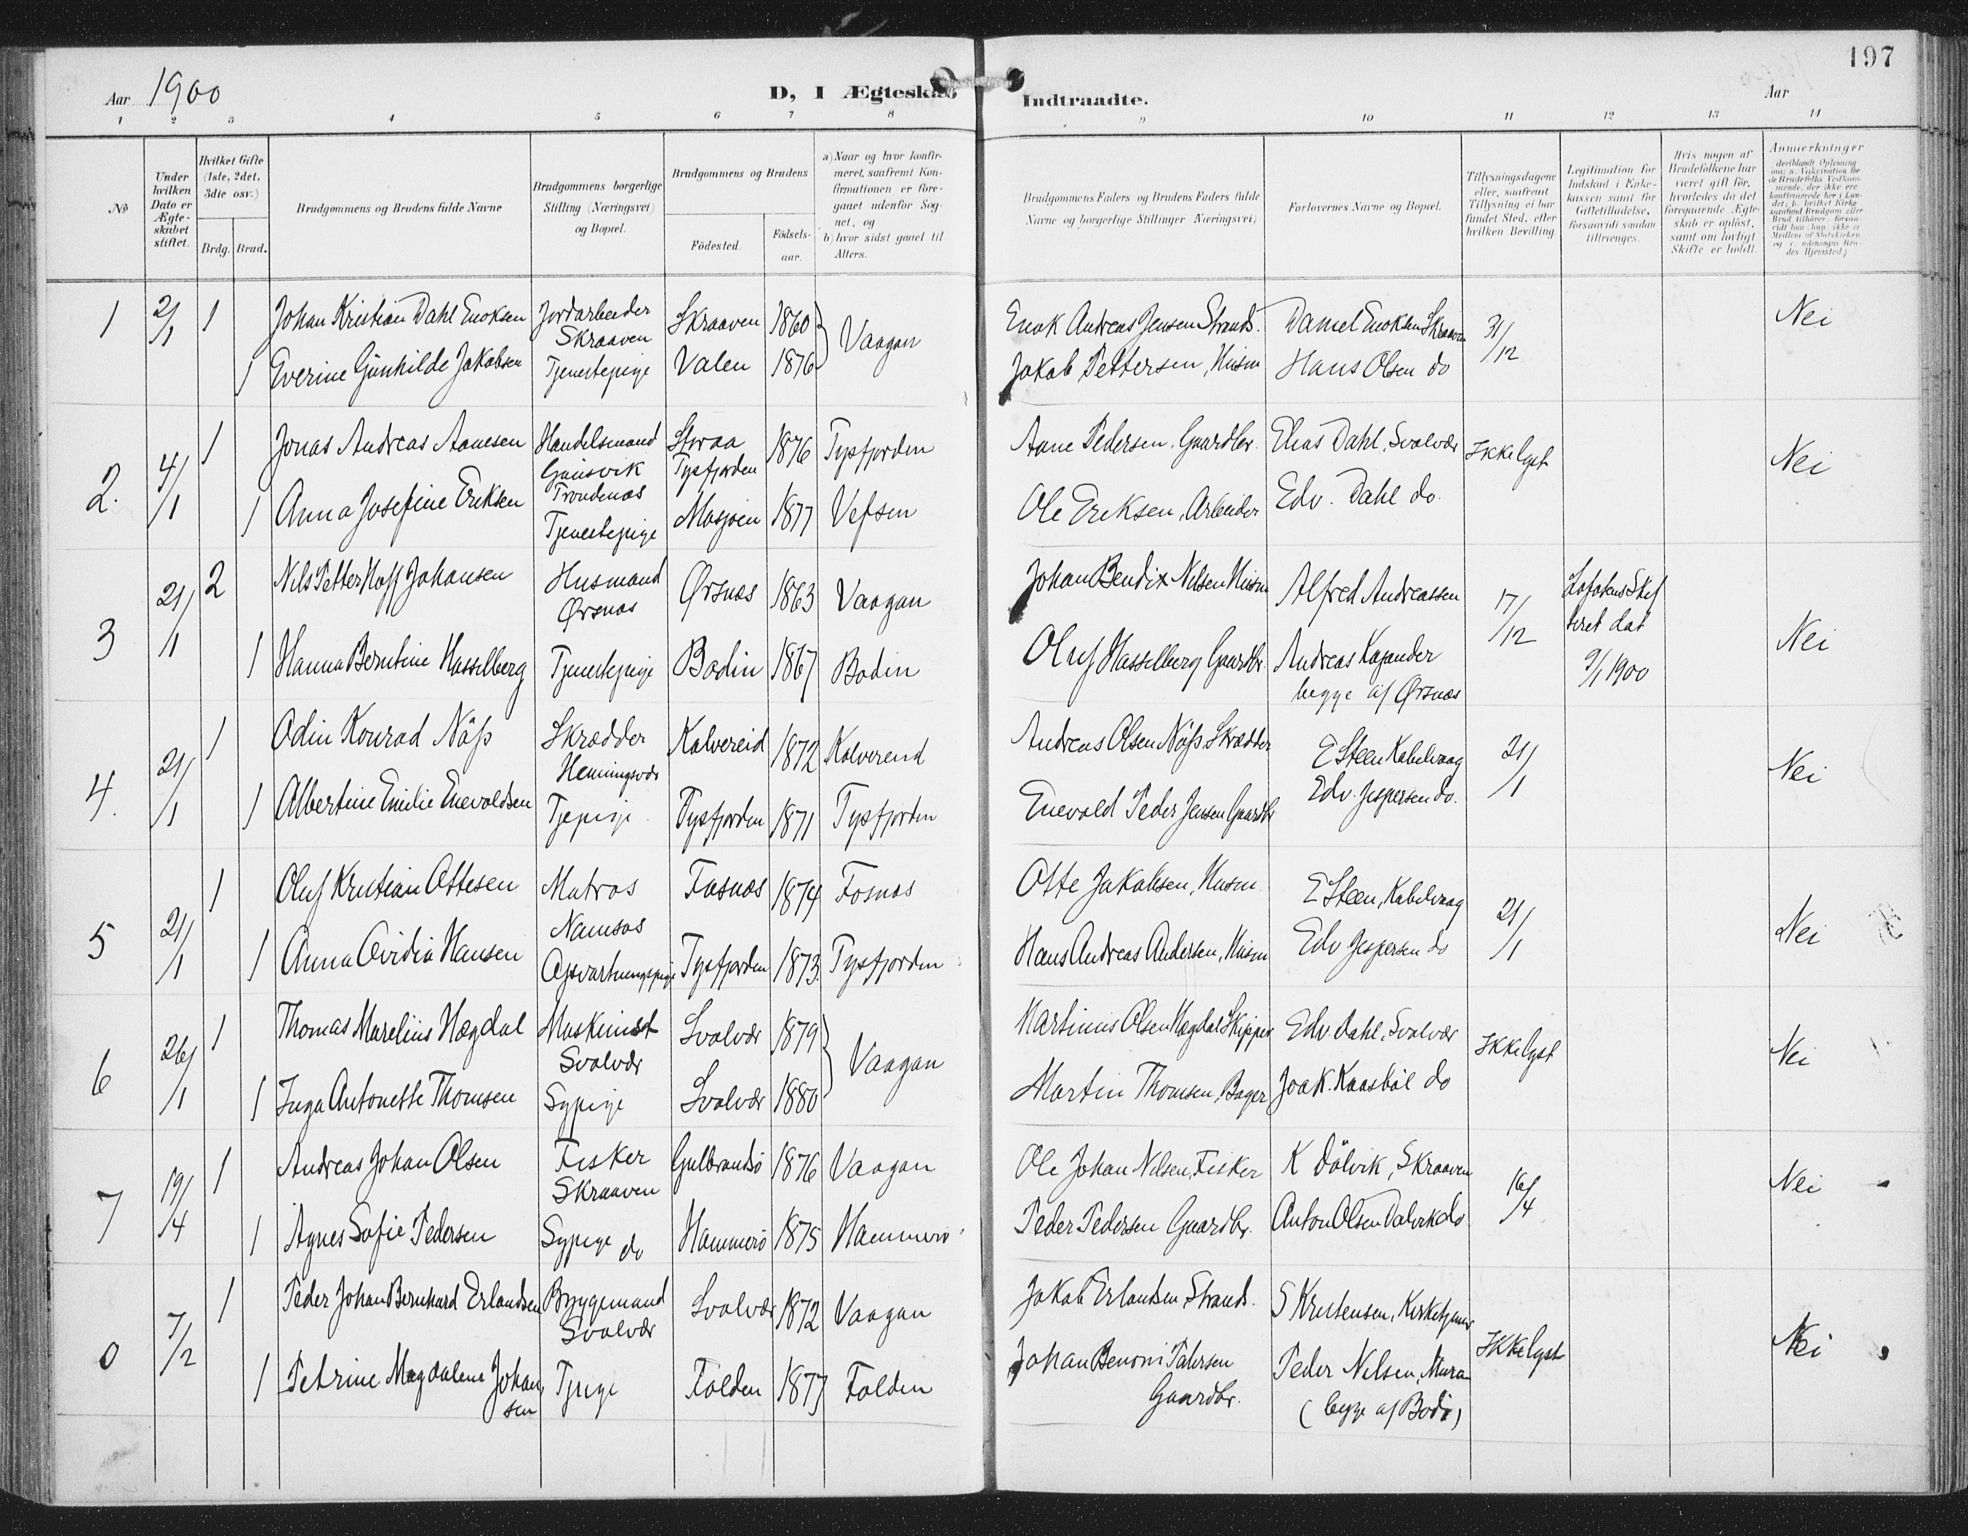 197
Aar 1900
D, I Ægteskab Indtraadte.
Aar
1 2 3 4 5 6 7 8 9 10 11 12 13 14
No
Under hvilken Dato er Ægteskabet stiftet.
Hvilket Gifte (1ste, 2det, 3die osv.)
Brdg. Brud.
Brudgommens og Brudens fulde Navne
Brudgommens borgerlige Stilling (Næringsvei) og Bopæl.
Brudgommens og Brudens
Födested. Födselsaar.
a) Naar og hvor konfirmeret, saafremt Konfirmationen er foregaaet udenfor Sognet, og
b) hvor sidst gaaet til Alters.
Brudgommens Faders og Brudens Faders fulde Navne og borgerlige Stillinger Næringsvei)
Forlovernes Navne og Bopæl.
Tillysningsdagene eller, saafremt Tillysning ei har fundet Sted, efter hvilken Bevilling
Legitimation for Indskud i Enkekassen samt for Giftetilladelse, forsaavidt saadan tiltrænges.
Hvis nogen af Brudefolkene har været gift för, hvorledes da det foregaaende Ægteskab er oplöst, samt om lovligt Skifte er holdt.
Anmærkninger
1 2/1 1 Johan Kristian Dahl Enoksen Jordarbeider Skraaven Skraaven 1860 Vaagan Enok Andreas Jensen Strands. Daniel Enoksen Skraaven 31/12 Nei
1 Everine Gunhilde Jakobsen Tjenestepige Valen 1876 Jakob Pettersen, Husm Hans Olsen do
2. 4/1 1 Jonas Andreas Aanesen Handelsmand Gausvik Trondenæs Storaa Tysfjorden 1876 Tysfjorden Aane Pedersen, Gaardbr. Elias Dahl, Svolvær Ikke lyst Nei
1 Anna Josefine Eriksen Tjenestepige Mosjøen 1877 Vefsen Ole Eriksen, Arbeider Edv. Dahl do.
3 21/1 2 Nils Petter Hoff Johansen Husmand Ørsnæs Ørsnæs 1863 Vaagan Johan Bendix Nilsen Husm Alfred Andreassen 17/12 9/1 1900 Nei
1 Hanna Berntine Hasselberg Tjenestepige Bodin 1867 Bodin Oluf Hasselberg Gaardbr. Andreas Kajander begge af Ørsnæs
4. 21/1 1 Odin Konrad Näss Skrædder Henningsvær Kolvereid 1872 Kolvereid Andreas Olsen Näss, Skrædder E Steen Kabelvaag 21/1 Nei
1 Albertine Emilie Enevoldsen Tjepige Tysfjorden 1871 Tysfjorden Enevold Peder Jensen Gaardbr Edv. Jespersen do.
5 21/1 1 Oluf Kristian Ottesen Matros Namsos Fosnæs 1874 Fosnæs Otte Jakobsen, Husm E Steen, Kabelvaag 21/1 Nei
1 Anna Ovidia Hansen Opvartningspige Tysfjorden 1873 Tysfjorden Hans Andreas Andersen, Husm Edv Jespersen do
6 26/1 1 Thomas Marelius Hægdal Maskinist Svolvær Svolvær 1879 Vaagan Martinus Olsen Hægdal Skipper Edv Dahl, Svolvær Ikke lyst Nei
1 Inga Antonette Thomsen Sypige Svolvær 1880 Martin Thomsen, Bager Joak. Kaasböl do
7 19/4 1 Andreas Johan Olsen Fisker Skraaven Gulbrandsø 1876 Vaagan Ole Johan Nilsen, Fisker K Dölvik, Skraaven 16/4 Nei
1 Agnes Sofie Pedersen Sypige do Hammerö 1875 Hammerö Peder Pedersen Gaardbr. Anton Olsen Dalvik do
0 7/2 1 Peder Johan Bernhard Erlandsen Bryggemand Svolvær Svolvær 1872 Vaagan Jakob Erlandsen, Strands. S Kristensen, Kirketjener Ikke lyst Nei
1 Petrine Magdalene Johansen Tjpige Folden 1877 Folden Johan Benoni Gaardbr. Peder Nilsen, (begge af Bodö)